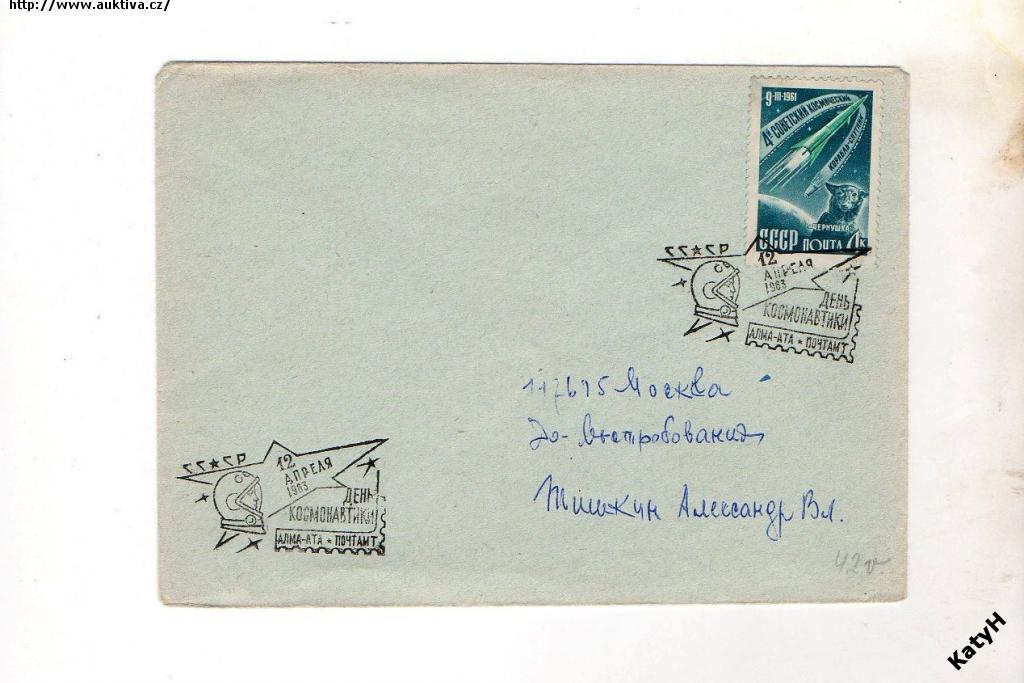 http://www.auktiva.cz/
9-III-1961
4й СОВЕТСКИЙ КОСМИЧЕСКИЙ
КОРАБЛЬ-СПУТНИК
ЧЕРНУШКА
СССР ПОЧТА 4К
СССР
12
АПРЕЛЯ
1963
ДЕНЬ
КОСМОНАВТИКИ
АЛМА-АТА ★ ПОЧТАМТ
Москва
До-Выстробования
Тишкин Александр Вл.
СССР
12
АПРЕЛЯ
1963
ДЕНЬ
КОСМОНАВТИКИ
АЛМА-АТА ★ ПОЧТАМТ
KatyH